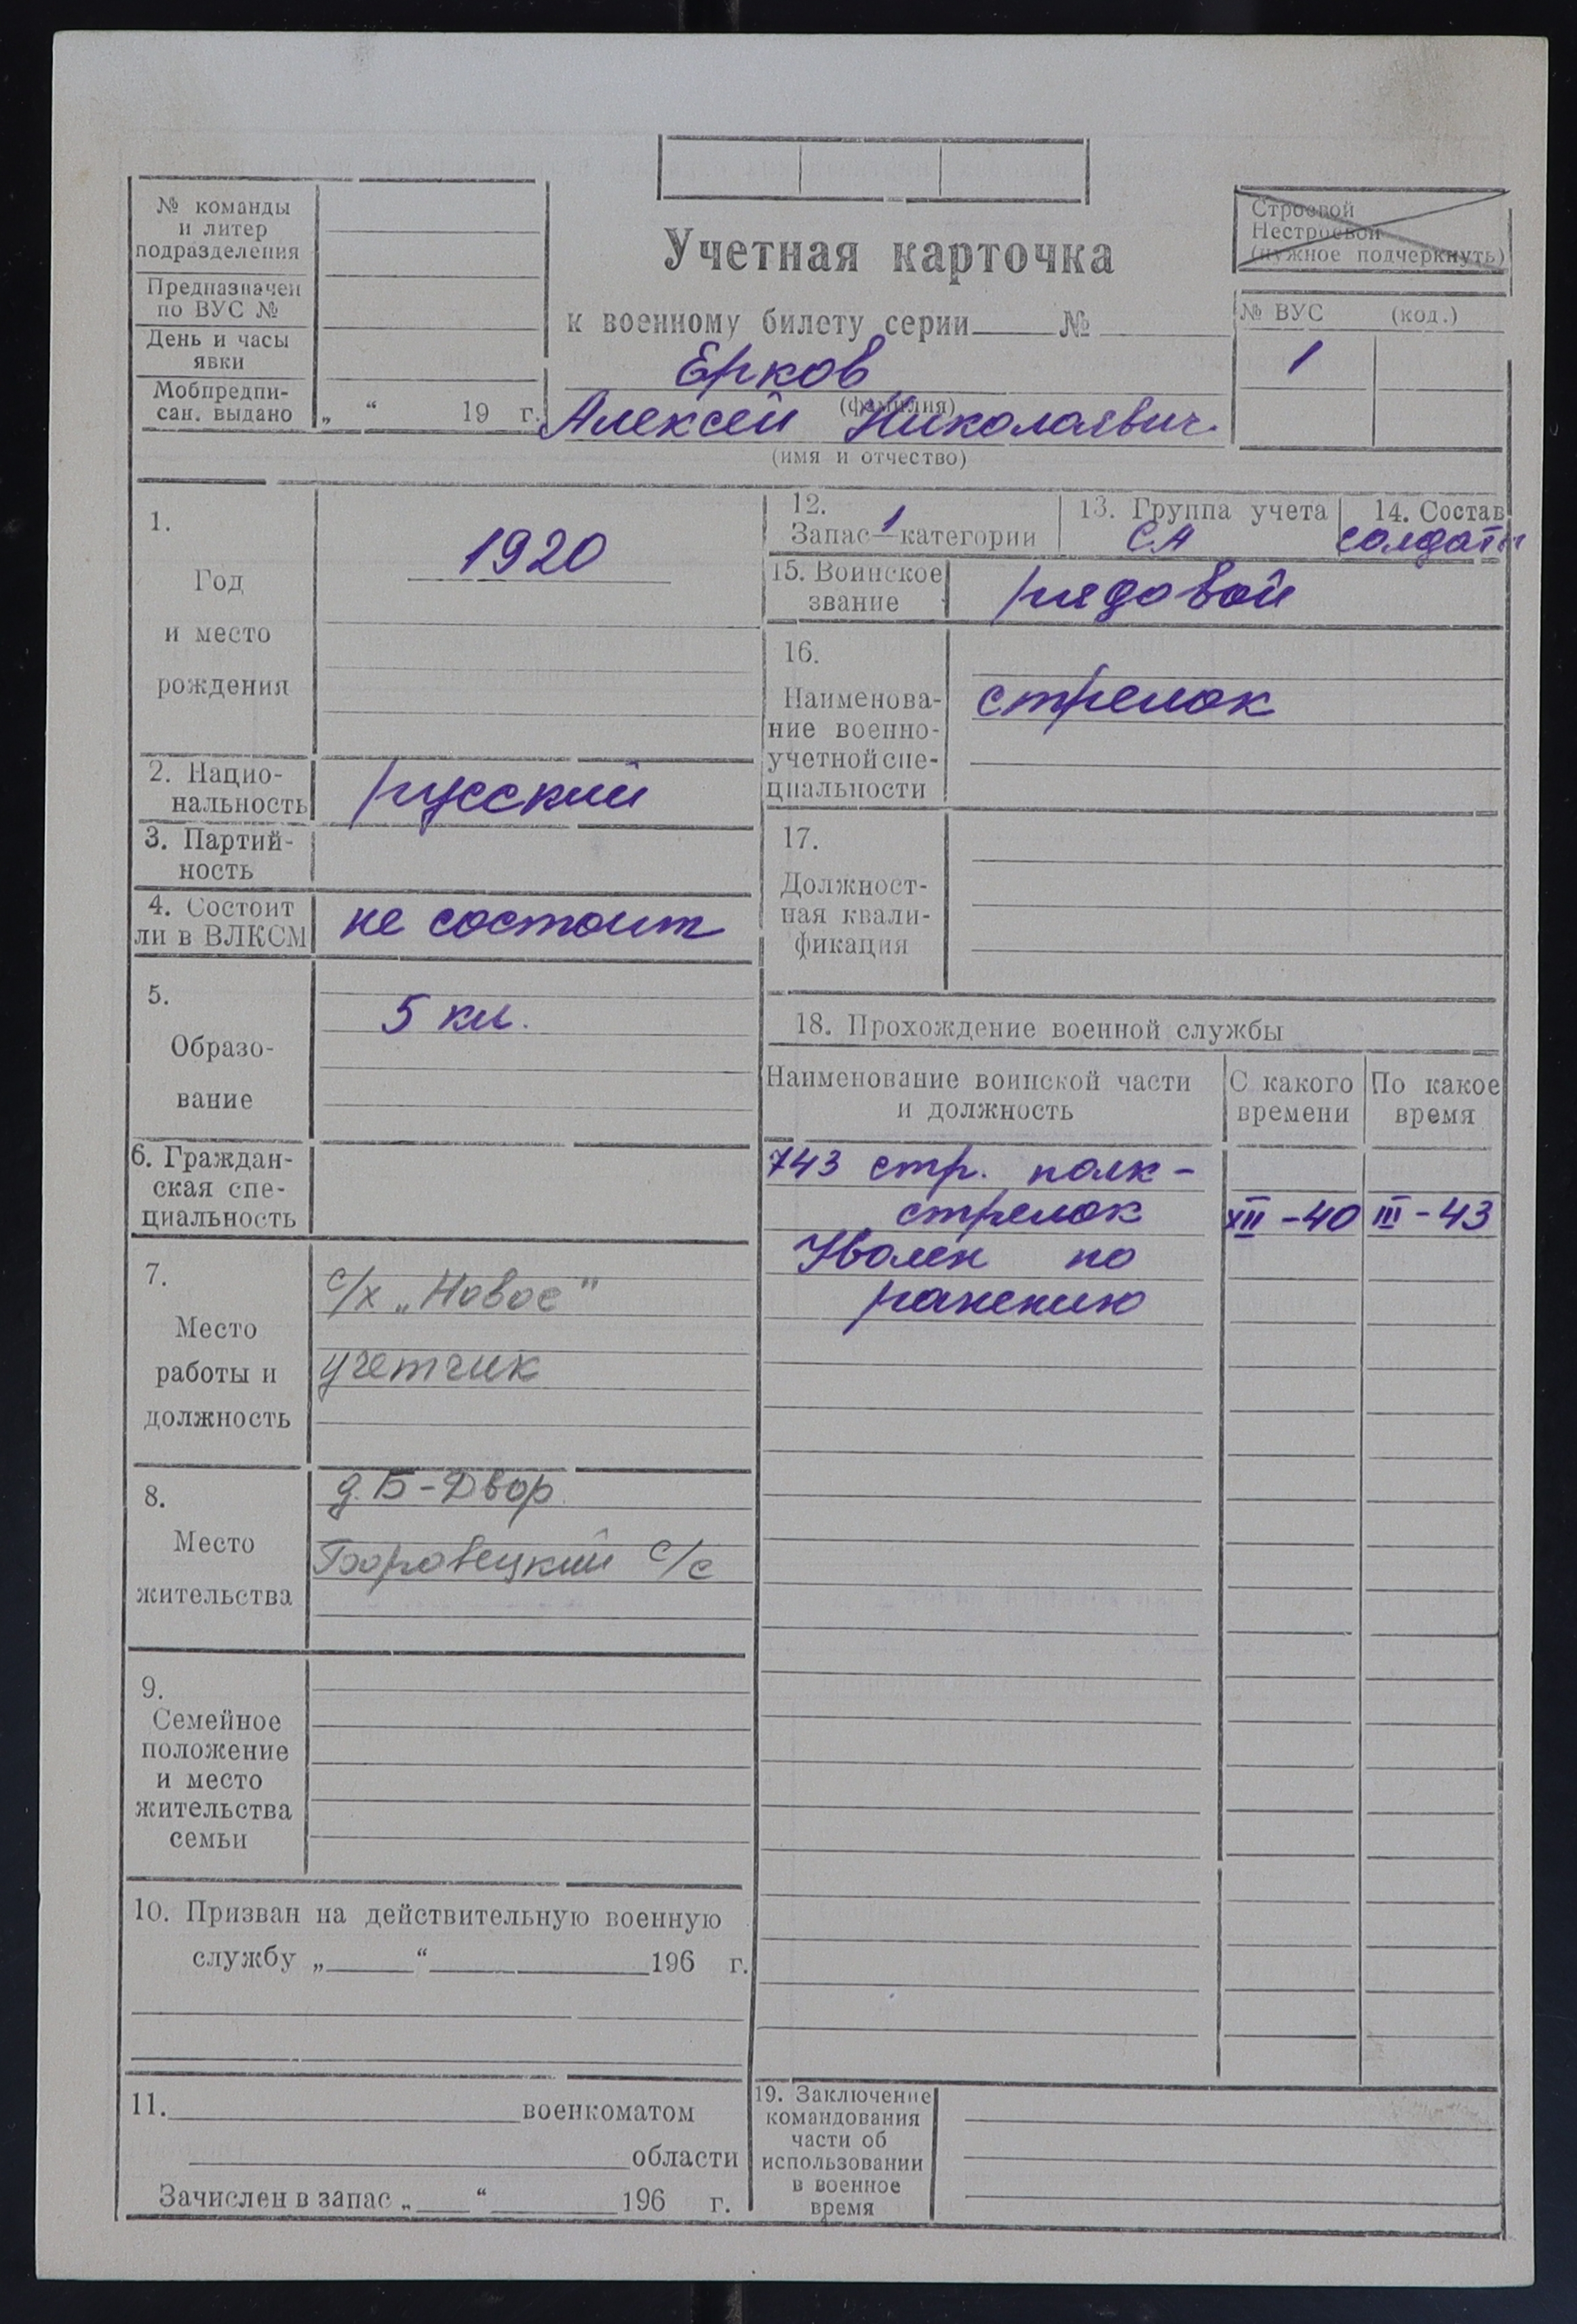 № команды
и литер
подразделения
Предназначен
по ВУС №
День и часы
явки
Мобпредпи-
сан. выдано
„ “ 19 г.
Учетная карточка
к военному билету серии №
Ерков
(фамилия)
Алексей Николаевич.
(имя и отчество)
Строевой
Нестроевой
(нужное подчеркнуть)
№ ВУС (код.)
1
1.
Год
и место
рождения
1920
2. Нацио-
нальность
русский
3. Партий-
ность
4. Состоит
ли в ВЛКСМ
не состоит
5.
Образо-
вание
5 кл.
6. Граждан-
ская спе-
циальность
7.
Место
работы и
должность
с/х „Новое"
учетчик
8.
Место
жительства
д. Б-Двор
Боровецкий с/с
9.
Семейное
положение
и место
жительства
семьи
10. Призван на действительную военную
службу „ “ 196 г.
11. военкоматом
области
Зачислен в запас „ “ 196 г.
12.
Запас 1 категории
13. Группа учета
СА
14. Состав
солдаты
15. Воинское
звание
рядовой
16.
Наименова-
ние военно-
учетной спе-
циальности
стрелок
17.
Должност-
ная квали-
фикация
18. Прохождение военной службы
Наименование воинской части
и должность
С какого
времени
По какое
время
743 стр. полк -
стрелок XII - 40 III - 43
Уволен по
ранению
19. Заключение
командования
части об
использовании
в военное
время